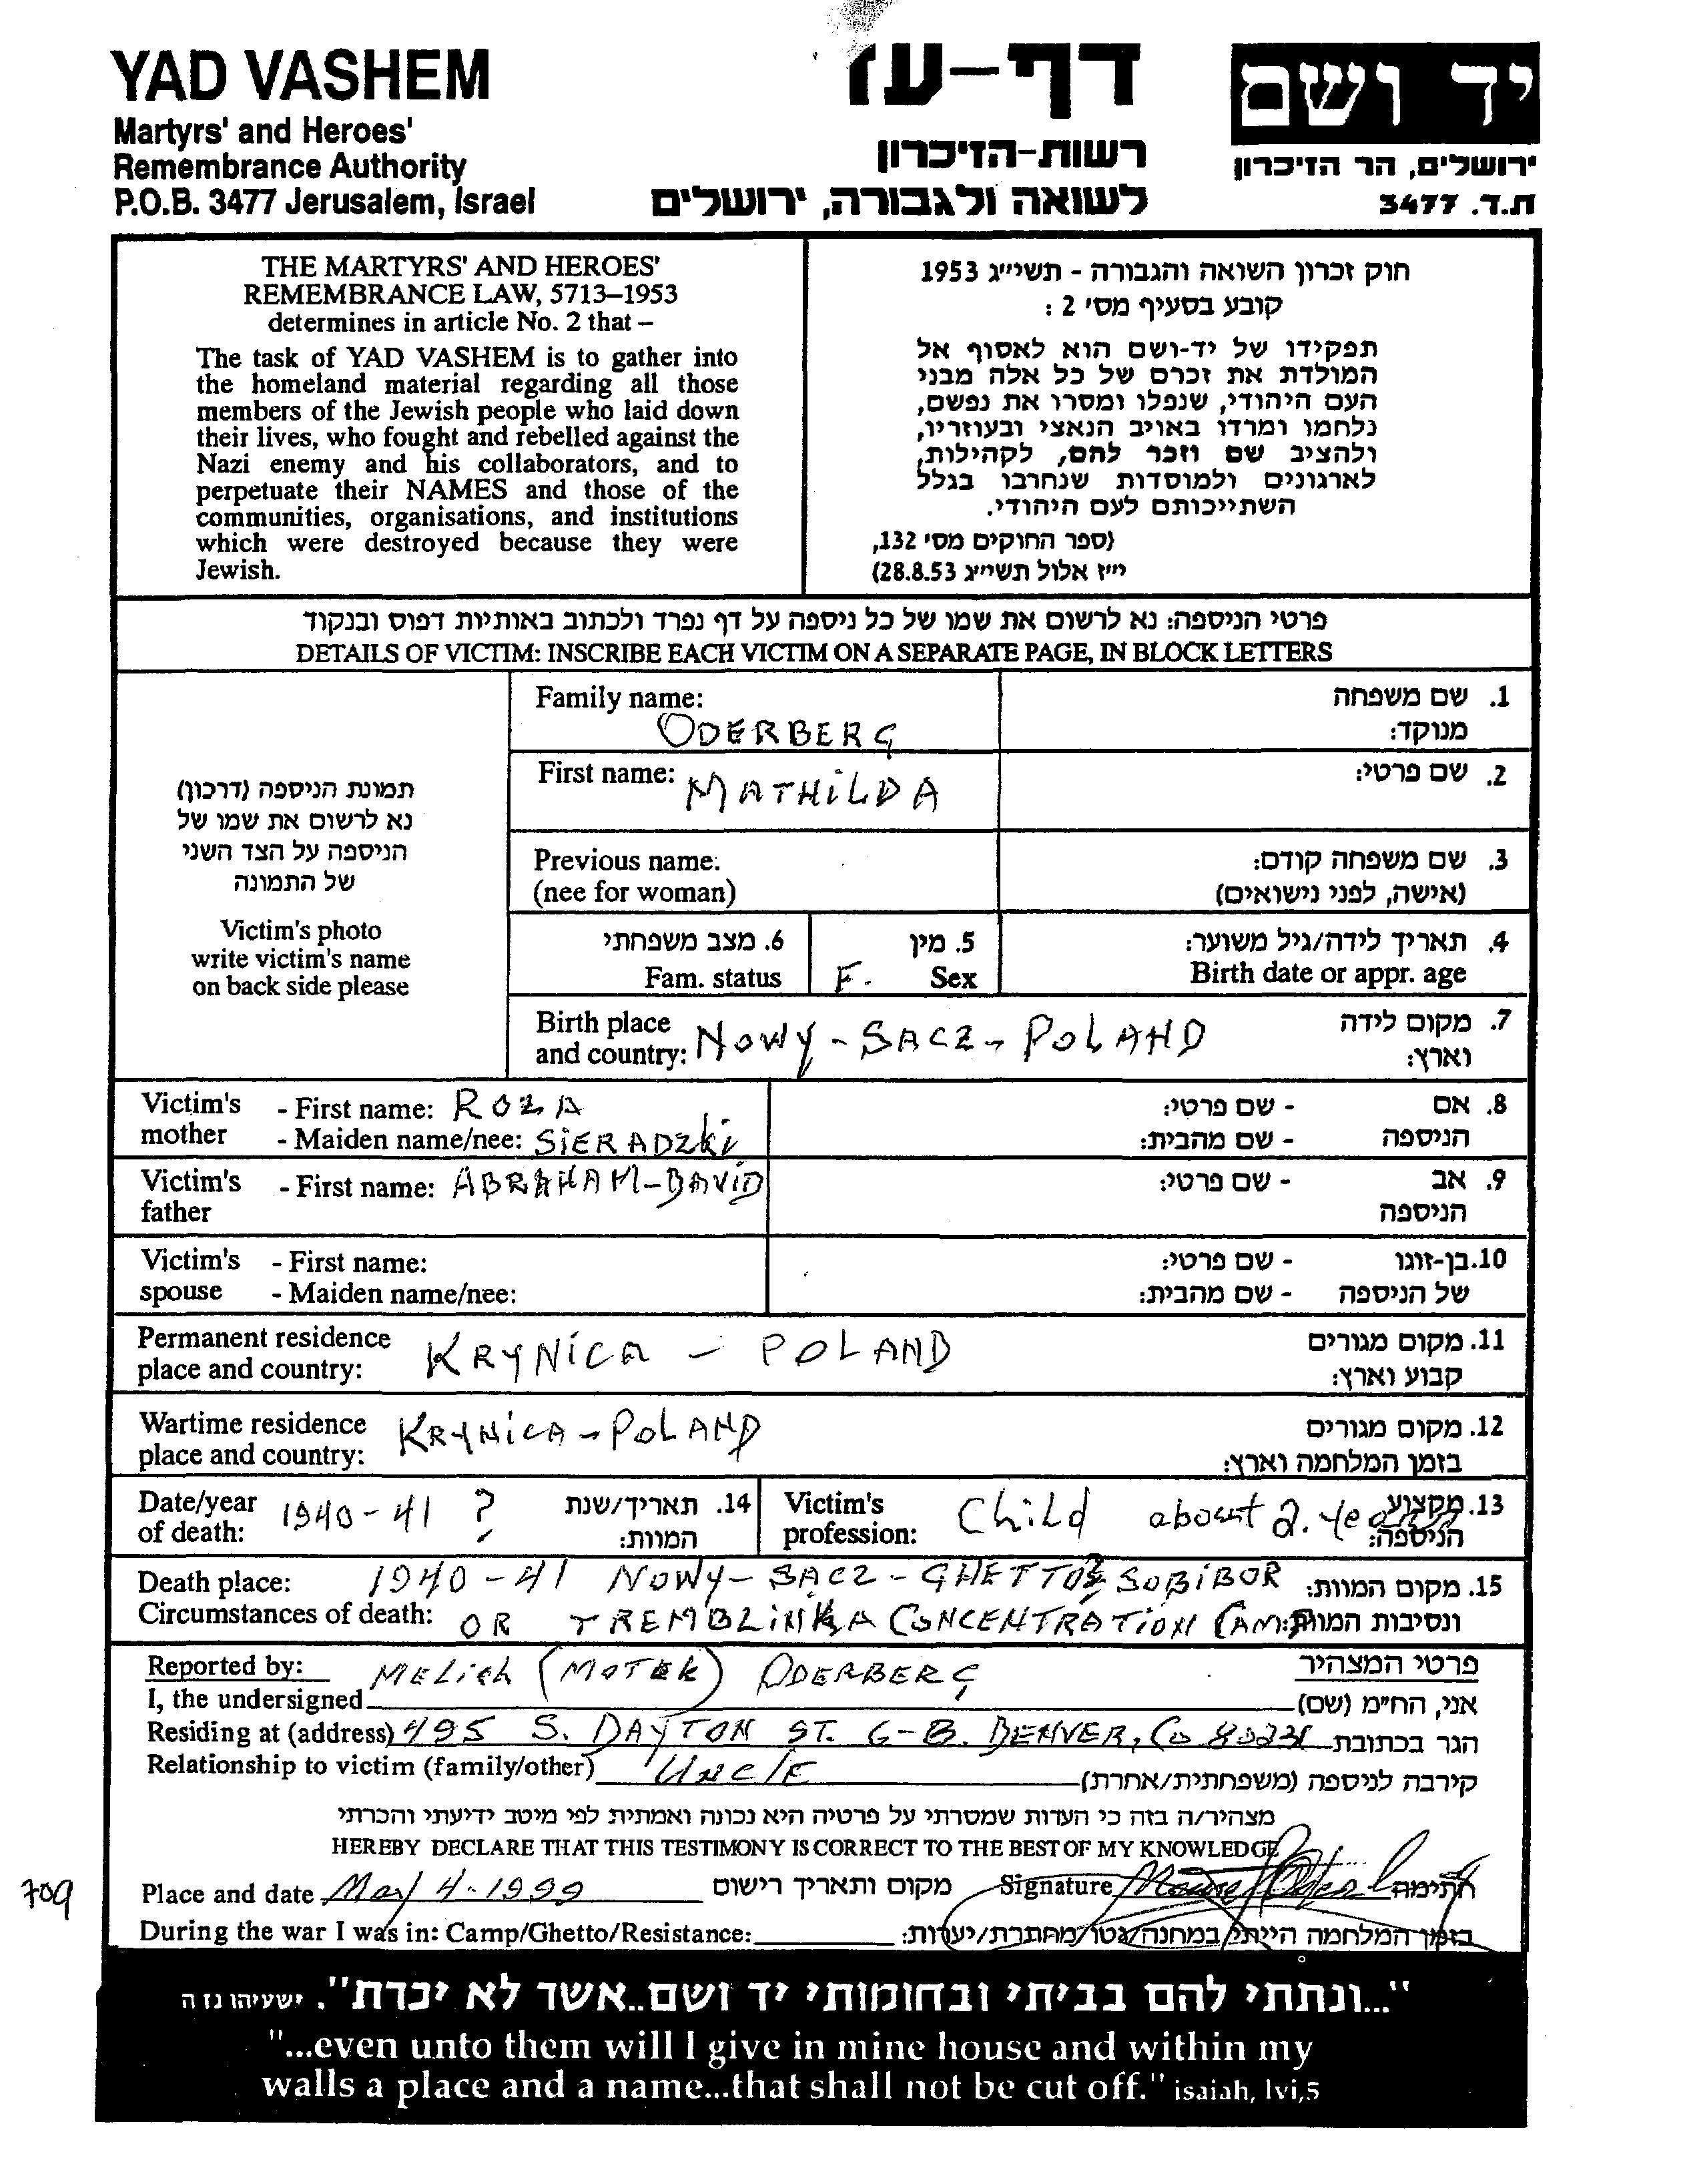 YAD VASHEM
Martyrs' and Heroes'
Remembrance Authority
P.O.B. 3477 Jerusalem, Israel
דף-עד
רשות-הזיכרון
לשואה ולגבורה, ירושלים
יד ושם
ירושלים, הר הזיכרון
ת.ד. 3477
THE MARTYRS' AND HEROES'
REMEMBRANCE LAW, 5713–1953
determines in article No. 2 that –
The task of YAD VASHEM is to gather into
the homeland material regarding all those
members of the Jewish people who laid down
their lives, who fought and rebelled against the
Nazi enemy and his collaborators, and to
perpetuate their NAMES and those of the
communities, organisations, and institutions
which were destroyed because they were
Jewish.
חוק זכרון השואה והגבורה - תשי״ג 1953
קובע בסעיף מס׳ 2 :
תפקידו של יד-ושם הוא לאסוף אל
המולדת את זכרם של כל אלה מבני
העם היהודי, שנפלו ומסרו את נפשם,
נלחמו ומרדו באויב הנאצי ובעוזריו,
ולהציב שם וזכר להם, לקהילות,
לארגונים ולמוסדות שנחרבו בגלל
השתייכותם לעם היהודי.
(ספר החוקים מס׳ 132,
י״ז אלול תשי״ג 28.8.53)
פרטי הניספה: נא לרשום את שמו של כל ניספה על דף נפרד ולכתוב באותיות דפוס ובנקוד
DETAILS OF VICTIM: INSCRIBE EACH VICTIM ON A SEPARATE PAGE, IN BLOCK LETTERS
תמונת הניספה (דרכון)
נא לרשום את שמו של
הניספה על הצד השני
של התמונה
Victim's photo
write victim's name
on back side please
Family name: 1. שם משפחה
ODERBERG מנוקד:
First name: MATHILDA 2. שם פרטי:
Previous name: 3. שם משפחה קודם:
(nee for woman) (אישה, לפני נישואים)
6. מצב משפחתי 5. מין 4. תאריך לידה/גיל משוער:
Fam. status F. Sex Birth date or appr. age
Birth place 7. מקום לידה
and country: NOWY - SACZ - POLAND וארץ:
Victim's - First name: ROZA - שם פרטי: 8. אם
mother - Maiden name/nee: SIERADZKI - שם מהבית: הניספה
Victim's - First name: ABRAHAM-DAVID - שם פרטי: 9. אב
father הניספה
Victim's - First name: - שם פרטי: 10. בן-זוגו
spouse - Maiden name/nee: - שם מהבית: של הניספה
Permanent residence 11. מקום מגורים
place and country: KRYNICA - POLAND קבוע וארץ:
Wartime residence 12. מקום מגורים
place and country: KRYNICA - POLAND בזמן המלחמה וארץ:
Date/year 1940-41 ? 14. תאריך/שנת Victim's Child about 2. years 13. מקצוע
of death: המוות: profession: הניספה:
Death place: 1940-41 NOWY- SACZ - GHETTO SOBIBOR 15. מקום המוות:
Circumstances of death: OR TREMBLINKA CONCENTRATION CAMP ונסיבות המוות:
Reported by: פרטי המצהיר
I, the undersigned MELICH (MOTEK) ODERBERG אני, הח״מ (שם)
Residing at (address) 495 S. DAYTON ST. 6-B. DENVER, Co 80231 הגר בכתובת
Relationship to victim (family/other) UNCLE קירבה לניספה (משפחתית/אחרת)
מצהיר/ה בזה כי העדות שמסרתי על פרטיה היא נכונה ואמתית לפי מיטב ידיעתי והכרתי
HEREBY DECLARE THAT THIS TESTIMONY IS CORRECT TO THE BEST OF MY KNOWLEDGE
Place and date May 4-1999 מקום ותאריך רישום Signature חתימה
709
During the war I was in: Camp/Ghetto/Resistance: בזמן המלחמה הייתי במחנה/גטו/מחתרת/יערות:
"...ונתתי להם בביתי ובחומותי יד ושם..אשר לא יכרת". ישעיהו נו ה
"...even unto them will I give in mine house and within my
walls a place and a name...that shall not be cut off." isaiah, lvi,5